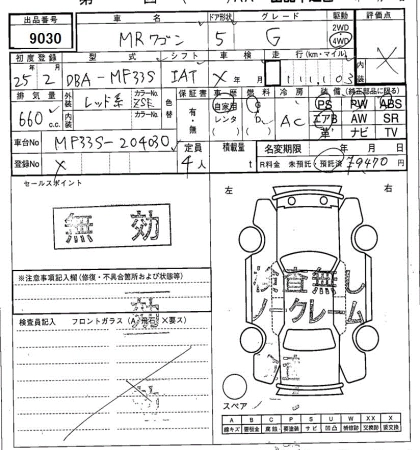 出品番号 車名 ドア形状 グレード 駆動 評価点
9030 MRワゴン 5 G 2WD 4WD X
初度登録 型式 シフト 車検 走行(km・マイル) 内装
25年2月 DBA-MF33S IAT X年 月
排気量 外装 カラーNo. 色替 保証書 車歴 燃料 冷房 装備(純正部品に限る)
660c.c. レッド系 ZSE 有・無 自家用 G AC PS PW ABS
内装 カラーNo. レンタ D エアB AW SR
革 ナビ TV
車台No MF33S-204030
登録No X
定員 4人 積載量 t 名変期限 年 月 日
R料金 未預託・預託済 79470円
セールスポイント
無効
左 右
※注意事項記入欄(修復・不具合箇所および状態等)
検査無し
ノークレーム
検査員記入 フロントガラス(A 飛石 X要ス)
スペア
A B C P S U W XX X
線キズ 要板金 腐蝕 要塗装 サビ 凹凸 補修跡 交換跡 要交換